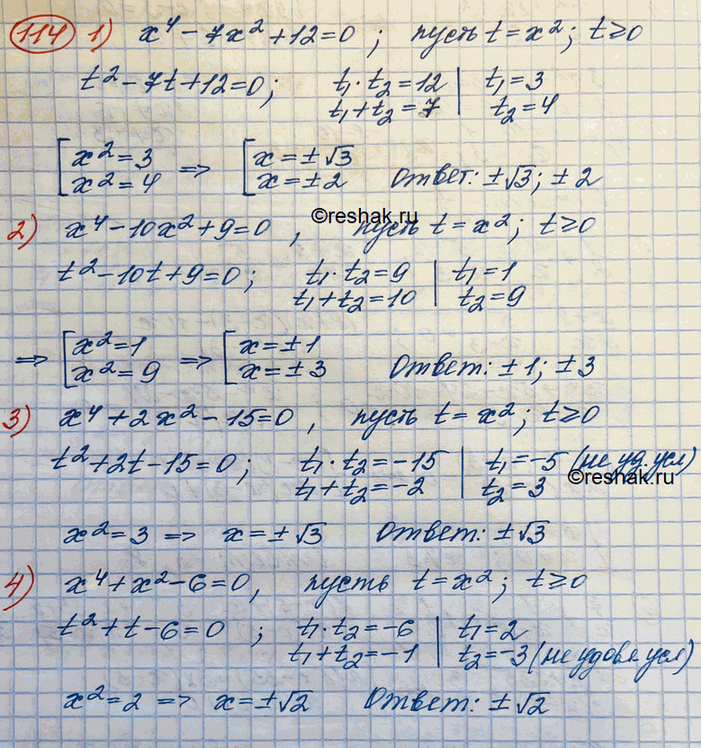 114 1) x⁴ − 7x² + 12 = 0 ; пусть t = x² ; t ≥ 0
t² − 7t + 12 = 0 ; t₁ · t₂ = 12 | t₁ = 3
t₁ + t₂ = 7 | t₂ = 4
[ x² = 3 ⇒ [ x = ± √3
x² = 4 x = ± 2 Ответ: ± √3 ; ± 2
©reshak.ru
2) x⁴ − 10x² + 9 = 0 , пусть t = x² ; t ≥ 0
t² − 10t + 9 = 0 ; t₁ · t₂ = 9 | t₁ = 1
t₁ + t₂ = 10 | t₂ = 9
⇒ [ x² = 1 ⇒ [ x = ± 1
x² = 9 x = ± 3 Ответ: ± 1 ; ± 3
3) x⁴ + 2x² − 15 = 0 , пусть t = x² ; t ≥ 0
t² + 2t − 15 = 0 ; t₁ · t₂ = −15 | t₁ = −5 (не уд. усл)
t₁ + t₂ = −2 | t₂ = 3
©reshak.ru
x² = 3 ⇒ x = ± √3 Ответ: ± √3
4) x⁴ + x² − 6 = 0 , пусть t = x² ; t ≥ 0
t² + t − 6 = 0 ; t₁ · t₂ = −6 | t₁ = 2
t₁ + t₂ = −1 | t₂ = −3 (не удовл. усл)
x² = 2 ⇒ x = ± √2 Ответ: ± √2